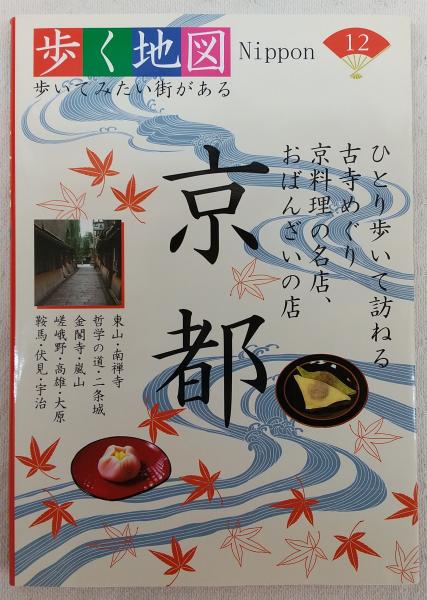 歩く地図 Nippon 12
歩いてみたい街がある
京都
ひとり歩いて訪ねる
古寺めぐり
京料理の名店、
おばんざいの店
東山・南禅寺
哲学の道・二条城
金閣寺・嵐山
嵯峨野・高雄・大原
鞍馬・伏見・宇治